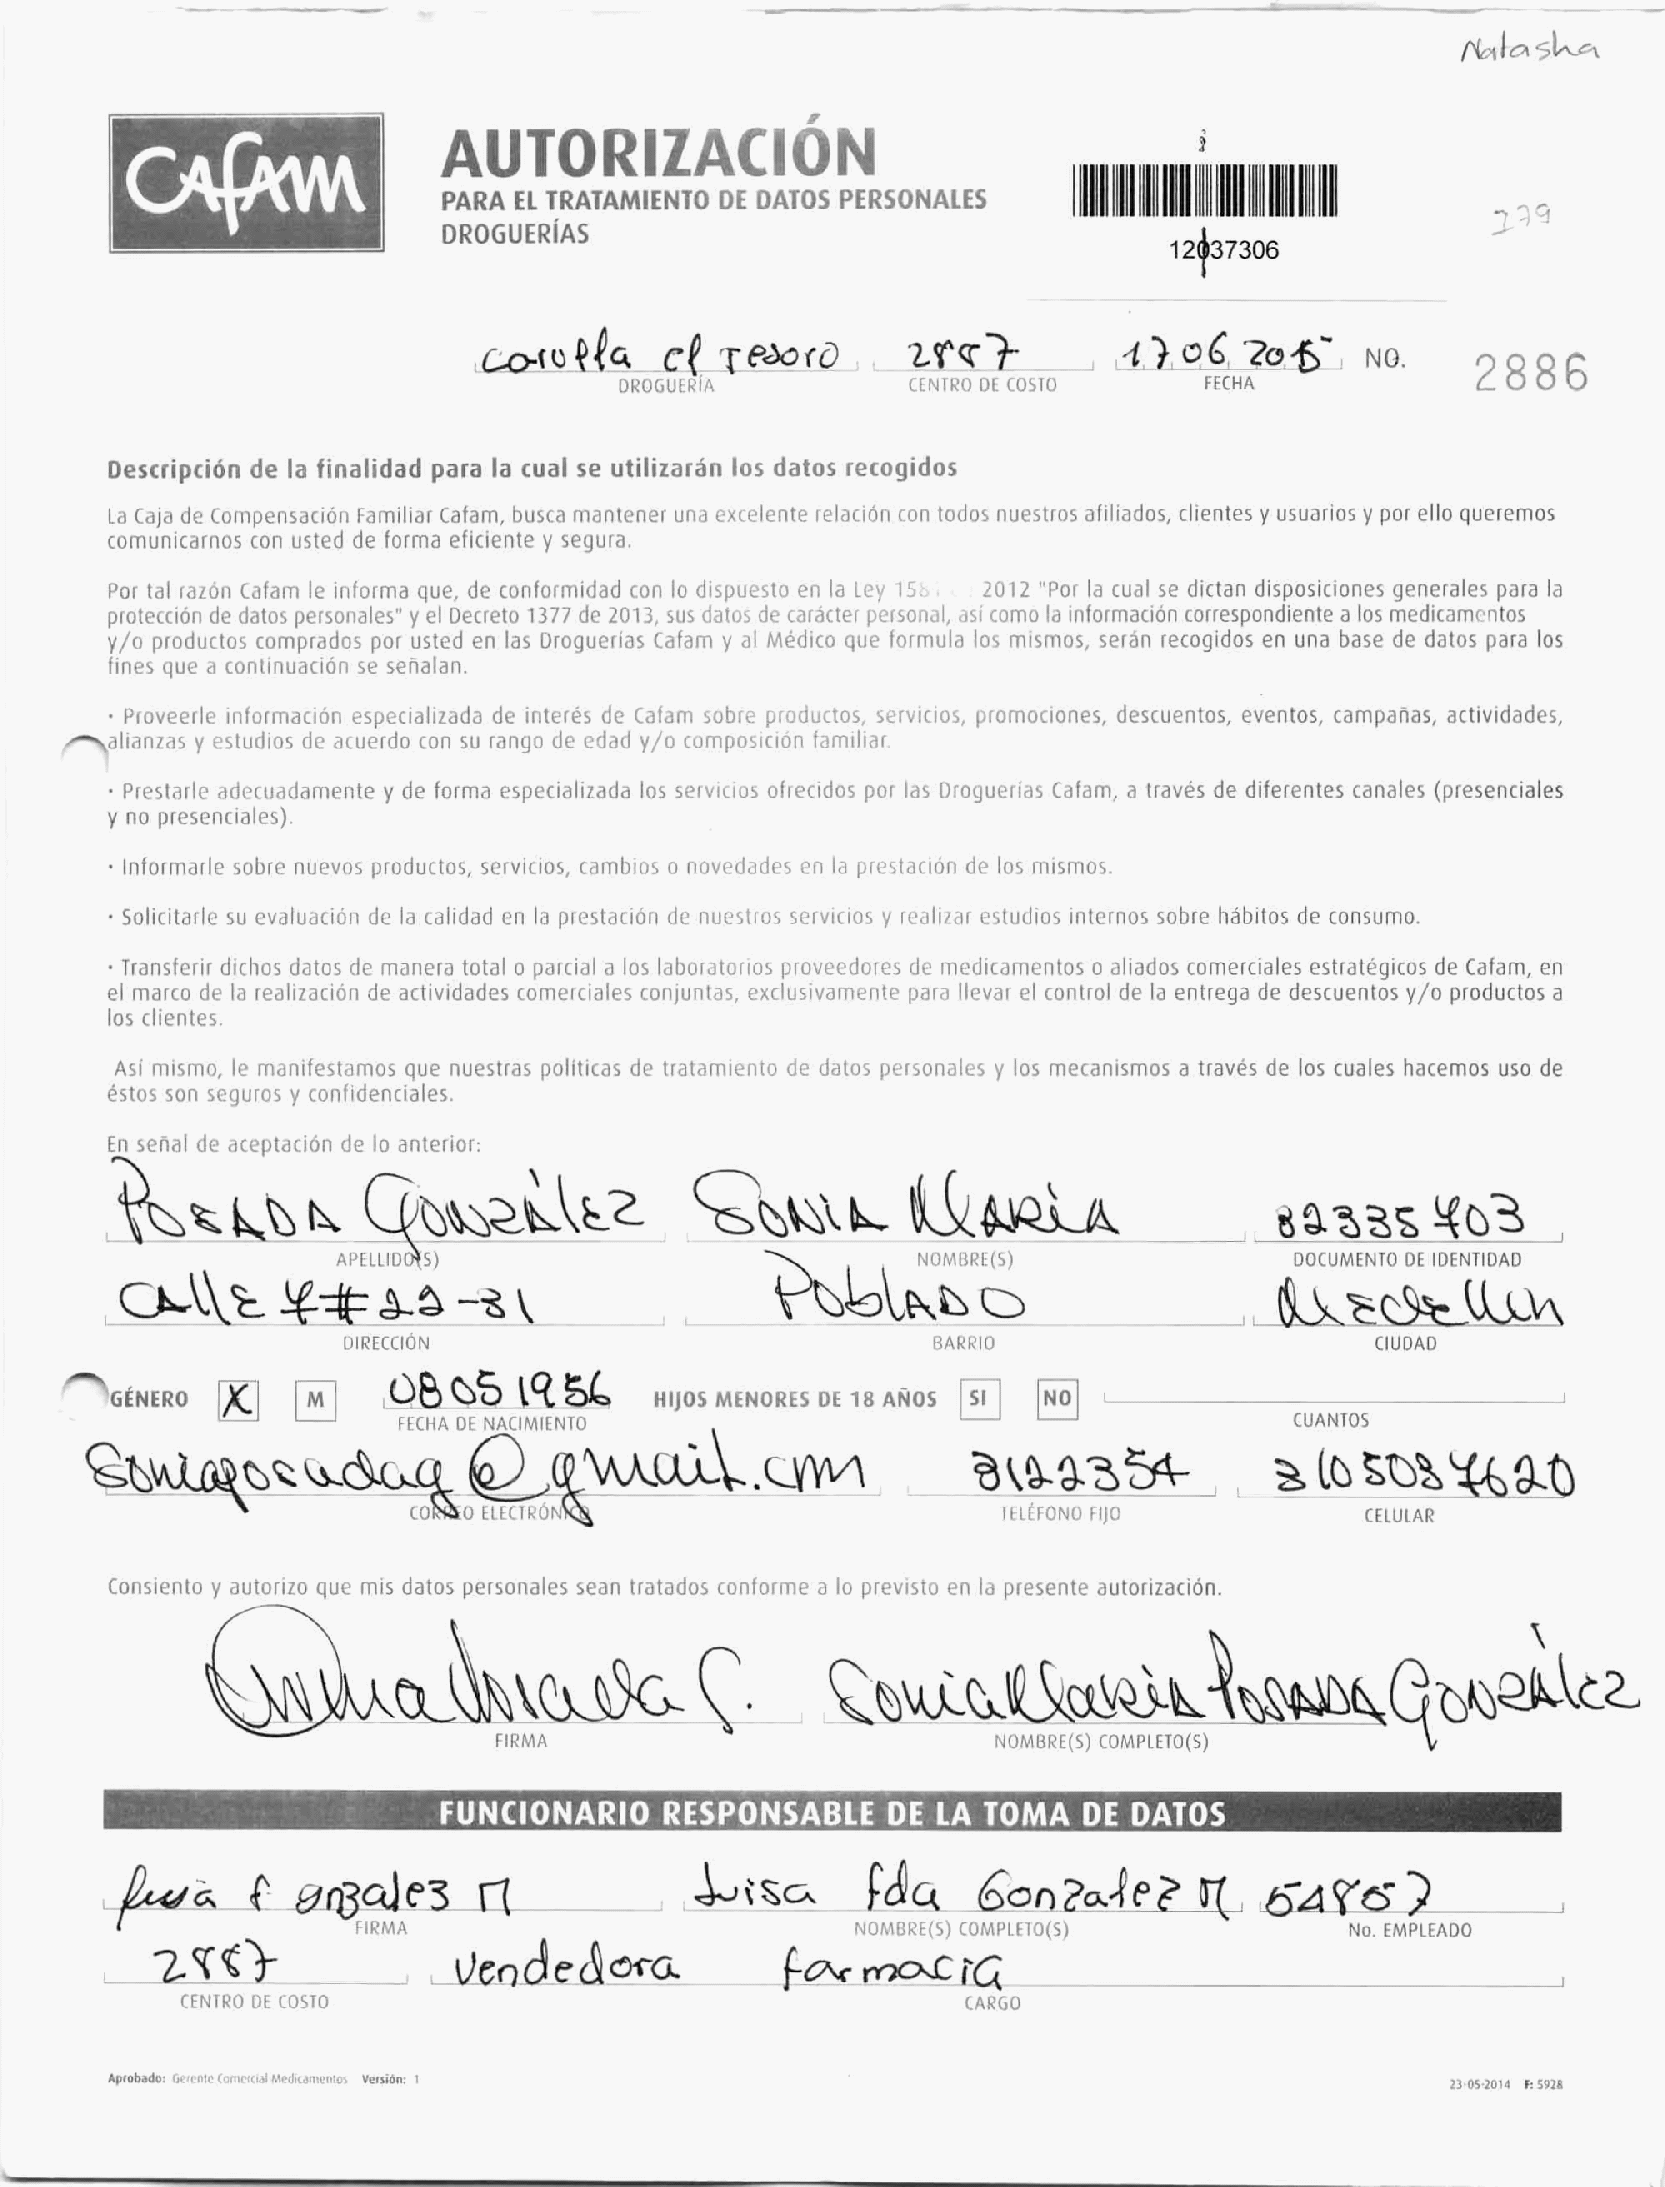 Natasha
CAFAM
AUTORIZACIÓN
PARA EL TRATAMIENTO DE DATOS PERSONALES
DROGUERÍAS
12037306
279
carulla el Tesoro 2887 17 06 2015 NO. 2886
DROGUERÍA CENTRO DE COSTO FECHA
Descripción de la finalidad para la cual se utilizarán los datos recogidos
La Caja de Compensación Familiar Cafam, busca mantener una excelente relación con todos nuestros afiliados, clientes y usuarios y por ello queremos
comunicarnos con usted de forma eficiente y segura.
Por tal razón Cafam le informa que, de conformidad con lo dispuesto en la Ley 2012 "Por la cual se dictan disposiciones generales para la
protección de datos personales" y el Decreto 1377 de 2013, sus datos de carácter personal, así como la información correspondiente a los medicamentos
y/o productos comprados por usted en las Droguerías Cafam y al Médico que formula los mismos, serán recogidos en una base de datos para los
fines que a continuación se señalan.
· Proveerle información especializada de interés de Cafam sobre productos, servicios, promociones, descuentos, eventos, campañas, actividades,
alianzas y estudios de acuerdo con su rango de edad y/o composición familiar.
· Prestarle adecuadamente y de forma especializada los servicios ofrecidos por las Droguerías Cafam, a través de diferentes canales (presenciales
y no presenciales).
· Informarle sobre nuevos productos, servicios, cambios o novedades en la prestación de los mismos.
· Solicitarle su evaluación de la calidad en la prestación de nuestros servicios y realizar estudios internos sobre hábitos de consumo.
· Transferir dichos datos de manera total o parcial a los laboratorios proveedores de medicamentos o aliados comerciales estratégicos de Cafam, en
el marco de la realización de actividades comerciales conjuntas, exclusivamente para llevar el control de la entrega de descuentos y/o productos a
los clientes.
Así mismo, le manifestamos que nuestras políticas de tratamiento de datos personales y los mecanismos a través de los cuales hacemos uso de
éstos son seguros y confidenciales.
En señal de aceptación de lo anterior:
POSADA GONZÁLEZ SONIA MARÍA 32335403
APELLIDO(S) NOMBRE(S) DOCUMENTO DE IDENTIDAD
CAllE 7#22-31 POblADO MEDEllín
DIRECCIÓN BARRIO CIUDAD
GÉNERO X M 08 05 1956 HIJOS MENORES DE 18 AÑOS SI NO
FECHA DE NACIMIENTO CUANTOS
soniaposadag@gmail.com 3122354 3105037620
CORREO ELECTRÓNICO TELÉFONO FIJO CELULAR
Consiento y autorizo que mis datos personales sean tratados conforme a lo previsto en la presente autorización.
Sonia María POSADA GonzÁlez
FIRMA NOMBRE(S) COMPLETO(S)
FUNCIONARIO RESPONSABLE DE LA TOMA DE DATOS
Luisa f gnzalez M Luisa fda Gonzalez M 54857
FIRMA NOMBRE(S) COMPLETO(S) No. EMPLEADO
2887 Vendedora farmacia
CENTRO DE COSTO CARGO
Aprobado: Gerente Comercial Medicamentos Versión: 1
23-05-2014 F: 5928